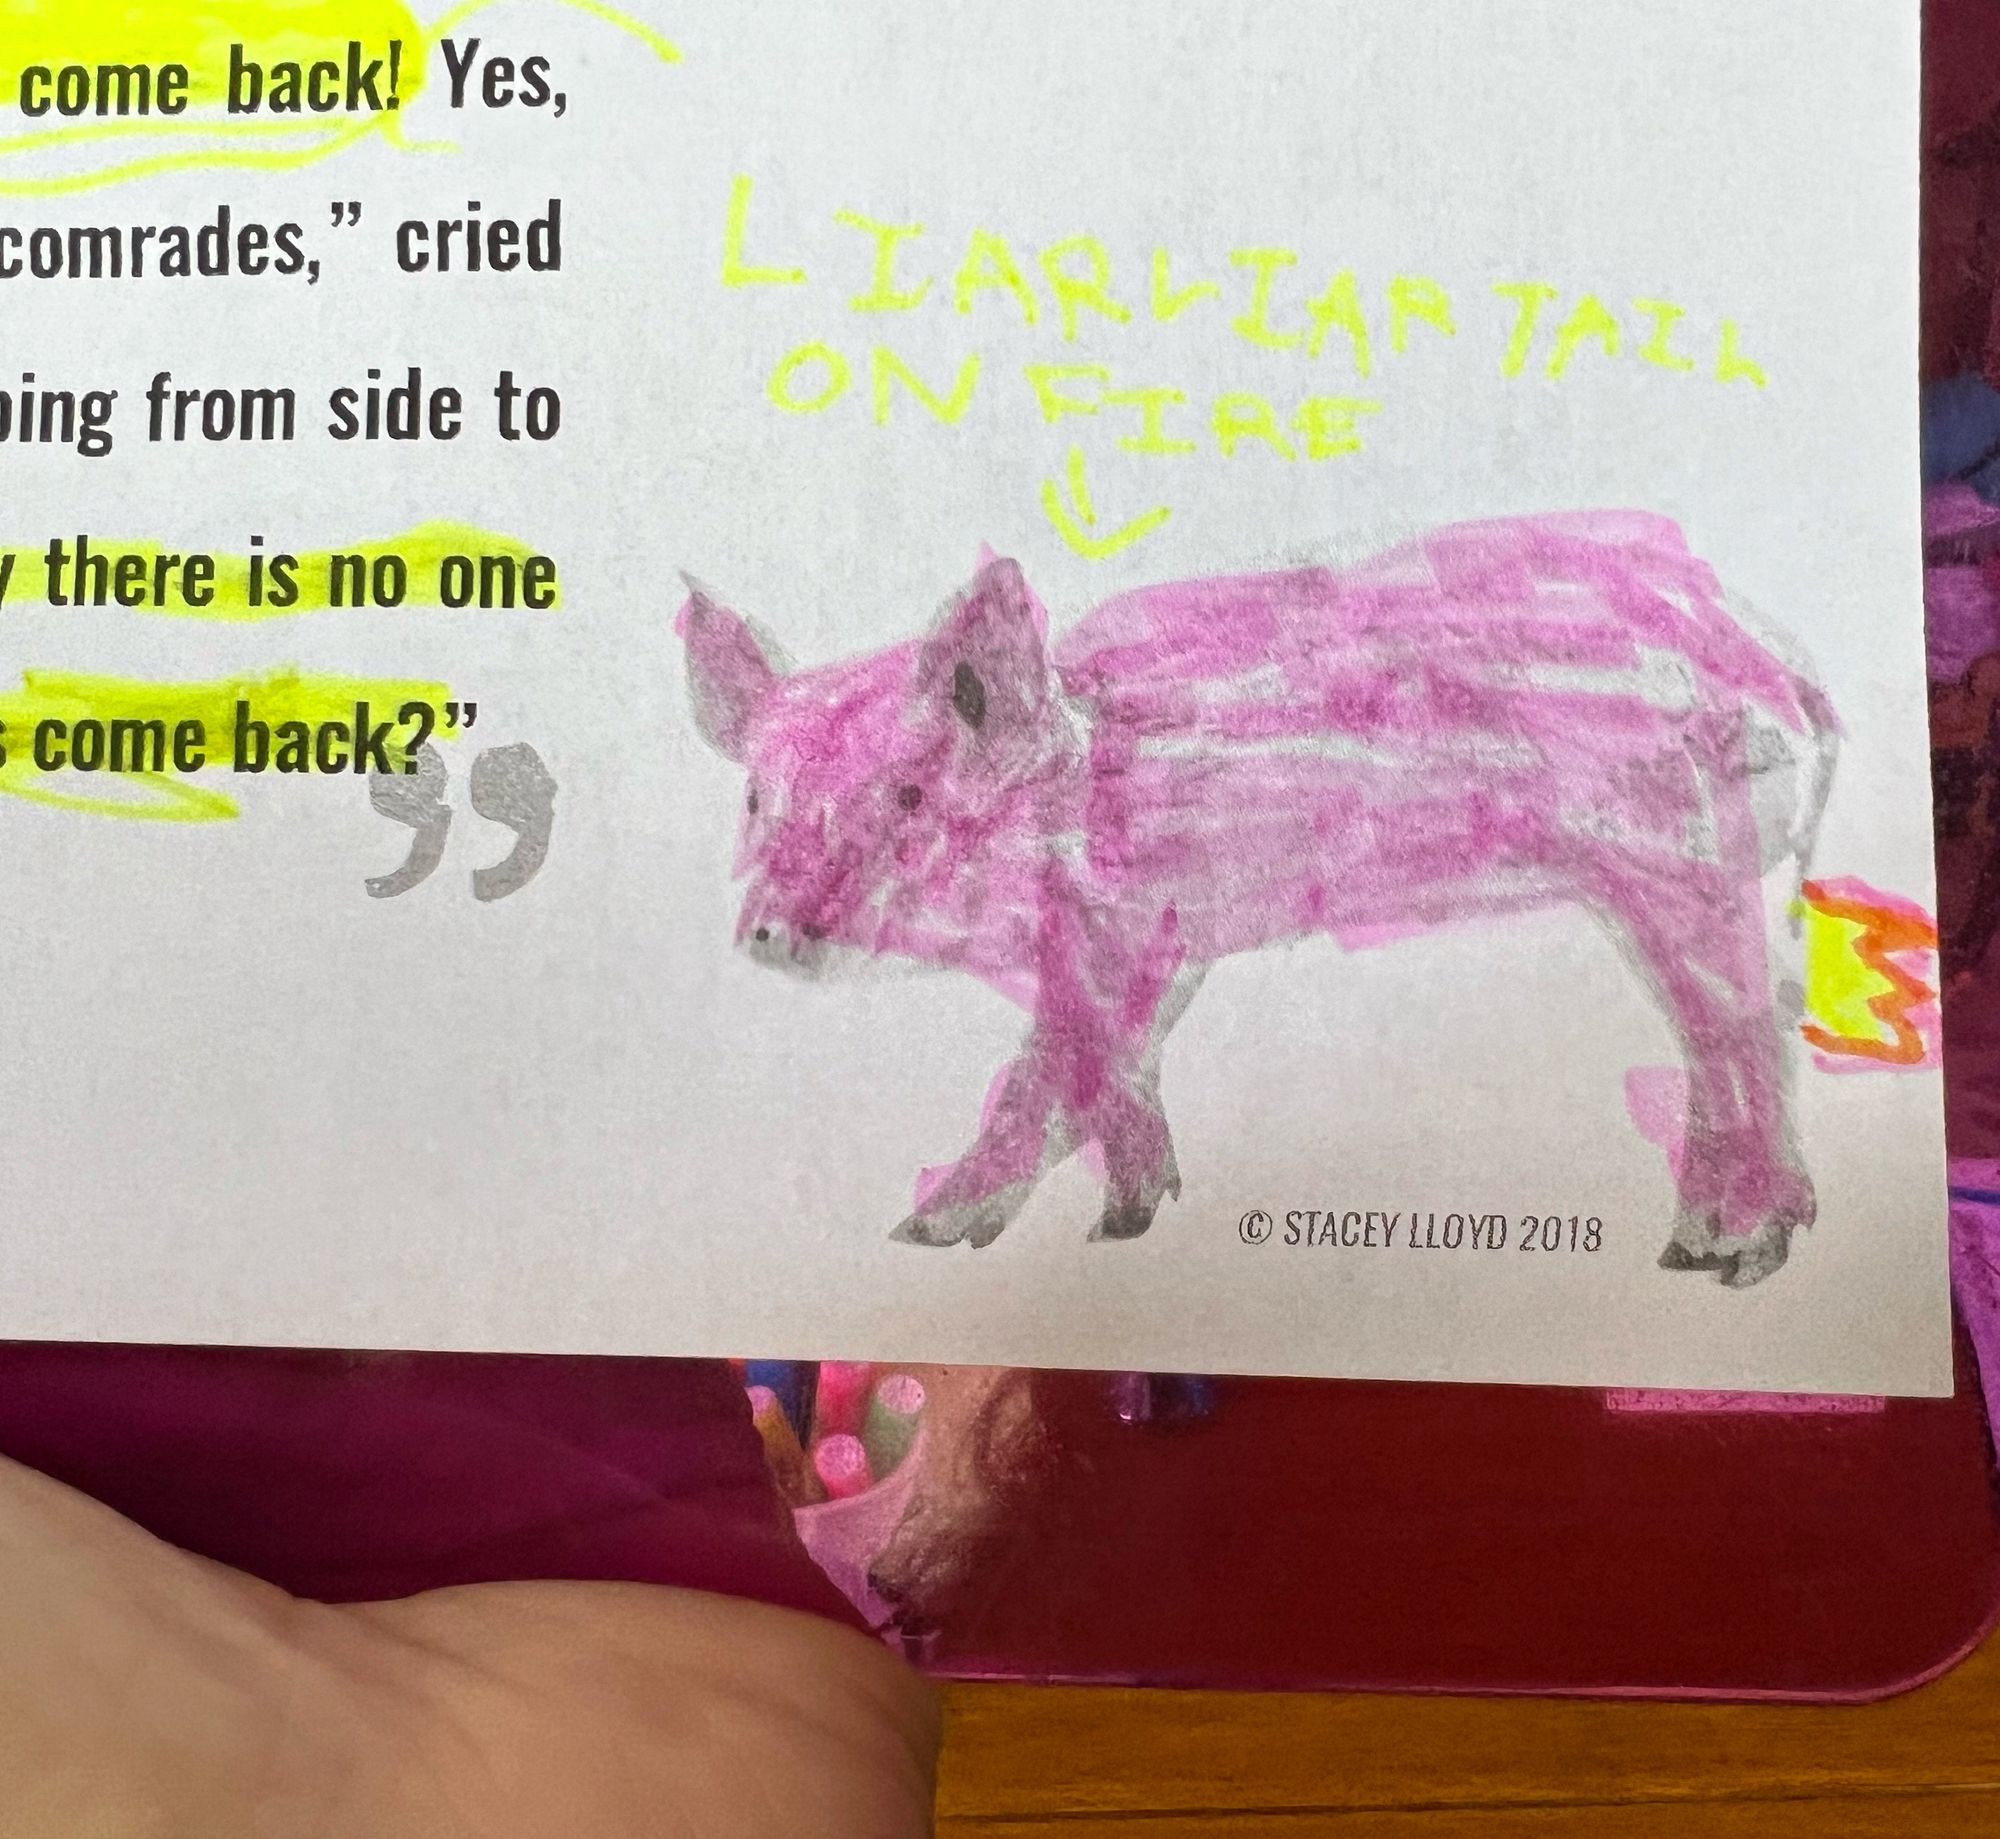 come back! Yes,
comrades,” cried
ping from side to
y there is no one
s come back?”
”
LIAR LIAR TAIL
ON FIRE
© STACEY LLOYD 2018